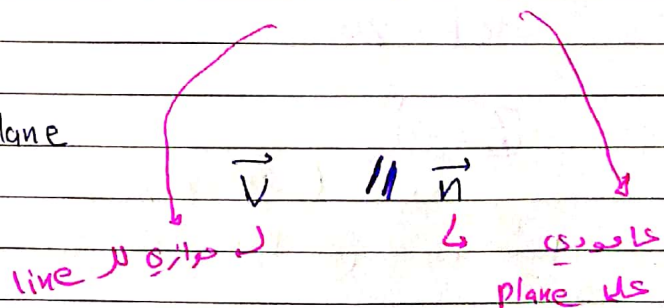 lane
v // n
موازي لل line
عامودي
على plane